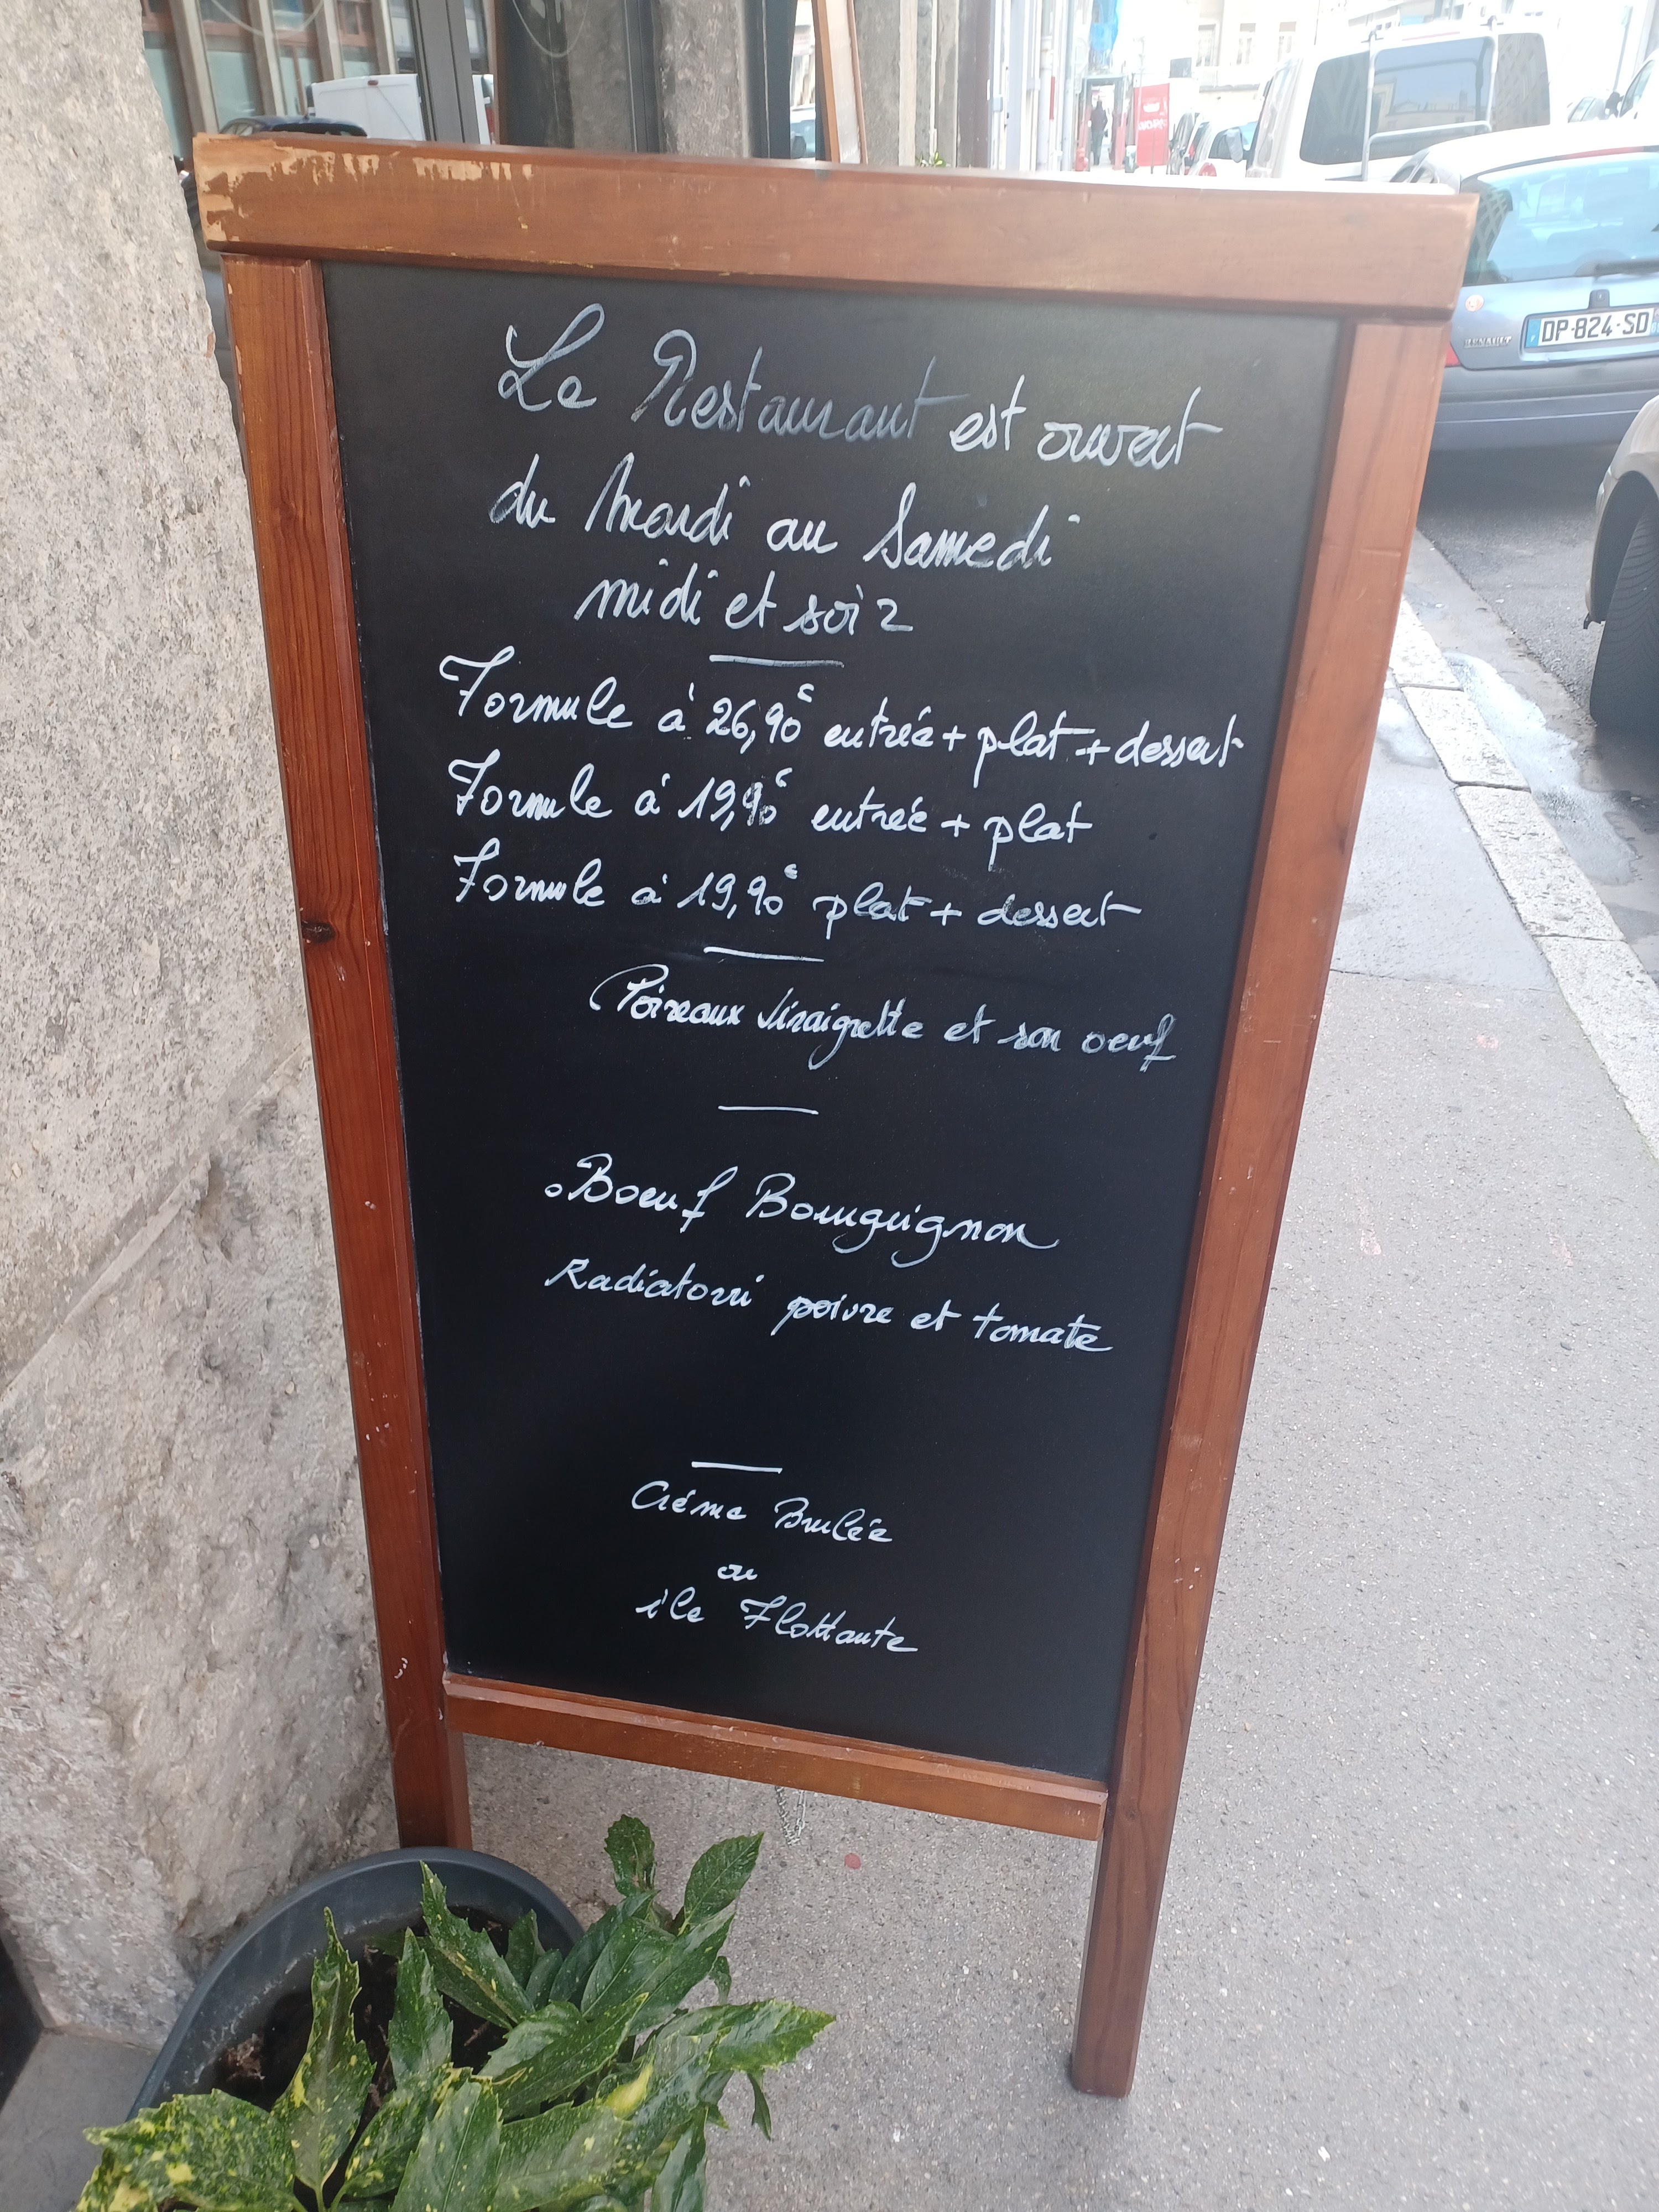 Le Restaurant est ouvert
du Mardi au Samedi
midi et soir
Formule à 26,90€ entrée + plat + dessert
Formule à 19,90€ entrée + plat
Formule à 19,90€ plat + dessert
Poireaux Vinaigrette et son oeuf
Boeuf Bourguignon
Radiatorri poivre et tomate
Créme Brulée
ou
île Flottante
DP-824-SD
RENAULT